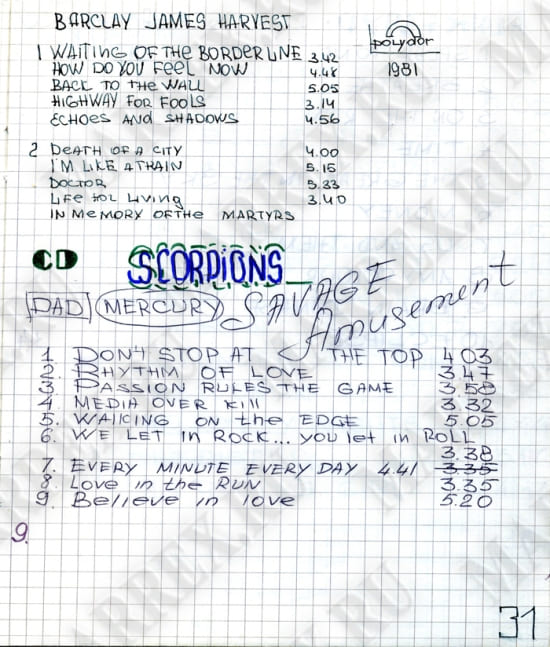 BARCLAY JAMES HARVEST
polydor
1981
1 WAITING OF THE BORDERLINE 3.42
HOW DO YOU FEEL NOW 4.48
BACK TO THE WALL 5.05
HIGHWAY FOR FOOLS 3.14
ECHOES AND SHADOWS 4.56
2 DEATH OF A CITY 4.00
I'M LIKE A TRAIN 5.15
DOCTOR 5.33
LIFE FOR LIVING 3.40
IN MEMORY OF THE MARTYRS
CD SCORPIONS
DAD MERCURY SAVAGE
Amusement
1. DON'T STOP AT THE TOP 4 03
2. RHYTHM OF LOVE 3.47
3 PASSION RULES THE GAME 3.58
4. MEDIA OVER KILL 3.32
5. WALKING ON the EDGE 5.05
6. WE LET IN ROCK... YOU let in ROLL
3.38
7. EVERY MINUTE EVERY DAY 4.41 3.35
8. LOVE in the RUN 3.35
9. Believe in love 5.20
9.
31
MARREX.RU